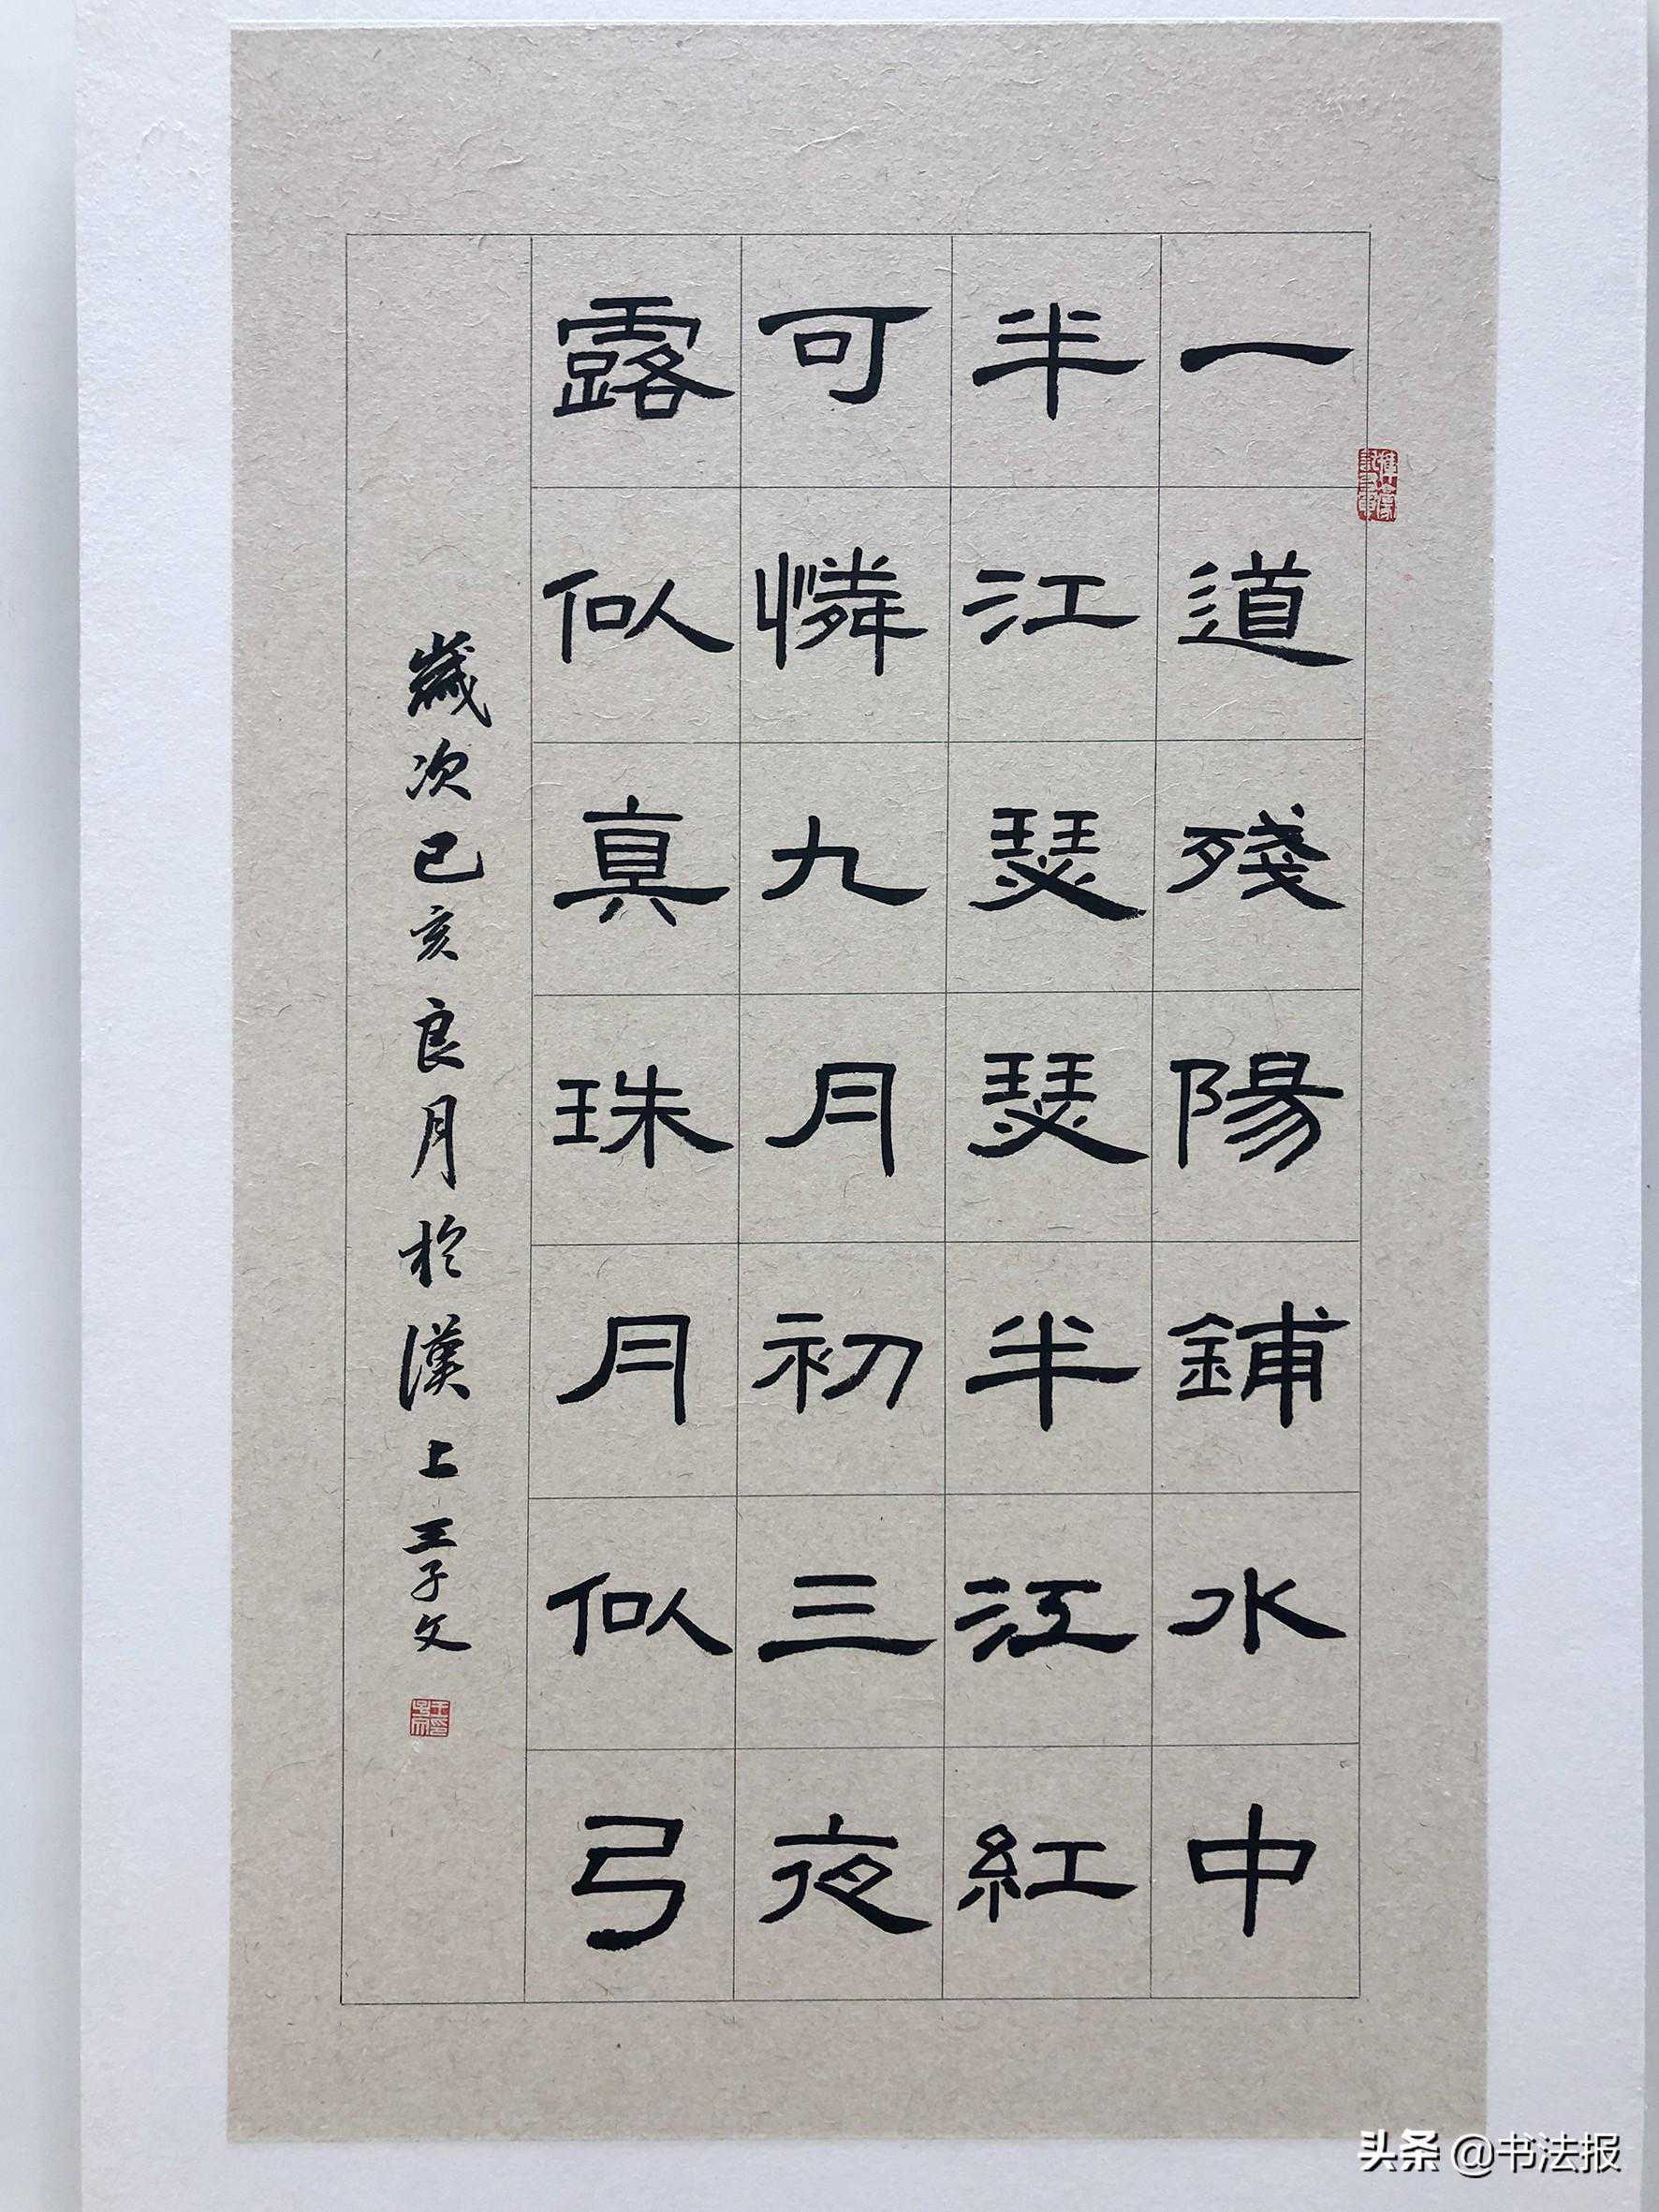 一道殘陽鋪水中
半江瑟瑟半江紅
可憐九月初三夜
露似真珠月似弓
歲次己亥良月於漢上王子文
头条 @书法报